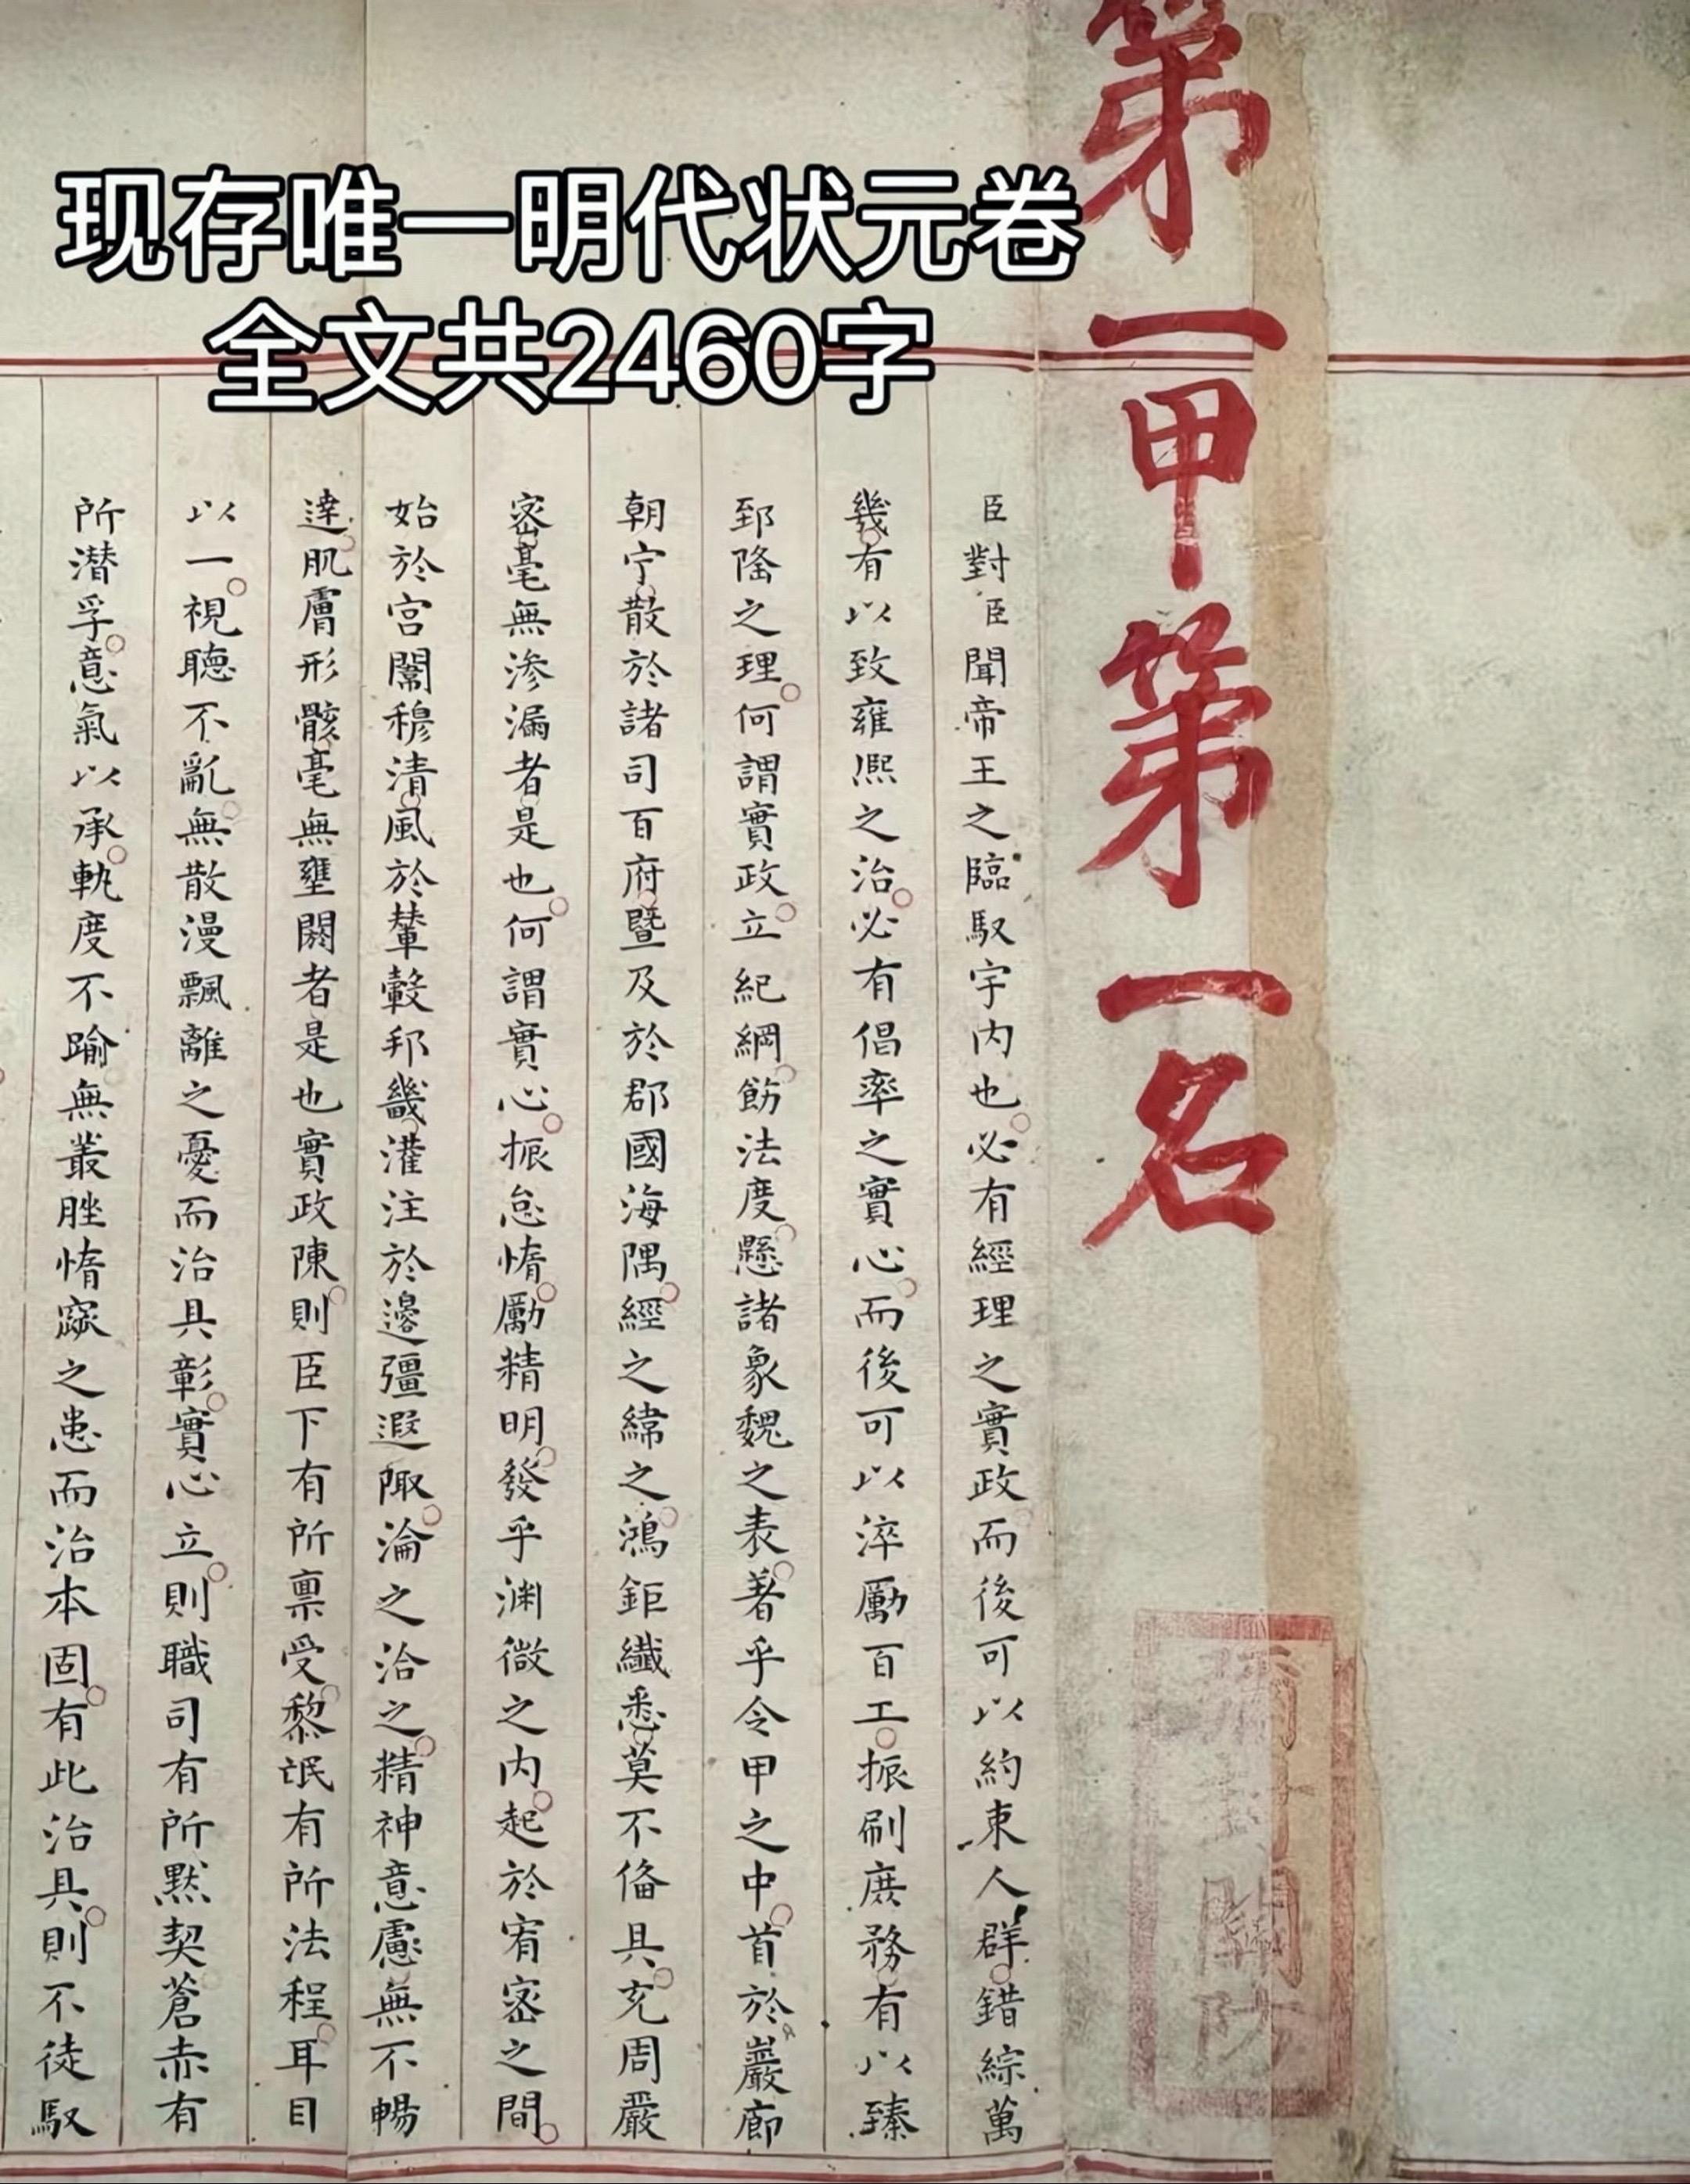 现存唯一明代状元卷
全文共2460字
第一甲第一名
臣對臣聞帝王之臨馭宇内也必有經理之實政而後可以約束人群錯綜萬
幾有以致雍熈之治必有倡率之實心而後可以淬厲百工振刷庶務有以臻
郅隆之理何謂實政立紀綱飭法度懸諸象魏之表著乎令甲之中首於巖廊
朝宁散於諸司百府暨及於郡國海隅經之緯之鴻鉅纖悉莫不俻具充周嚴
宻毫無滲漏者是也何謂實心振怠惰勵精明發乎渊微之内起於宥宻之間
始於宫闈穆清風於輦轂邦畿灌注於邊疆遐陬淪之洽之精神意慮無不暢
達肌膚形骸毫無壅閼者是也實政陳則臣下有所禀受黎氓有所法程耳目
以一視聽不亂無散漫飄離之憂而治具彰實心立則職司有所默契蒼赤有
所潜孚意氣以承軌度不踰無叢脞惰窳之患而治本固有此治具則不徒馭